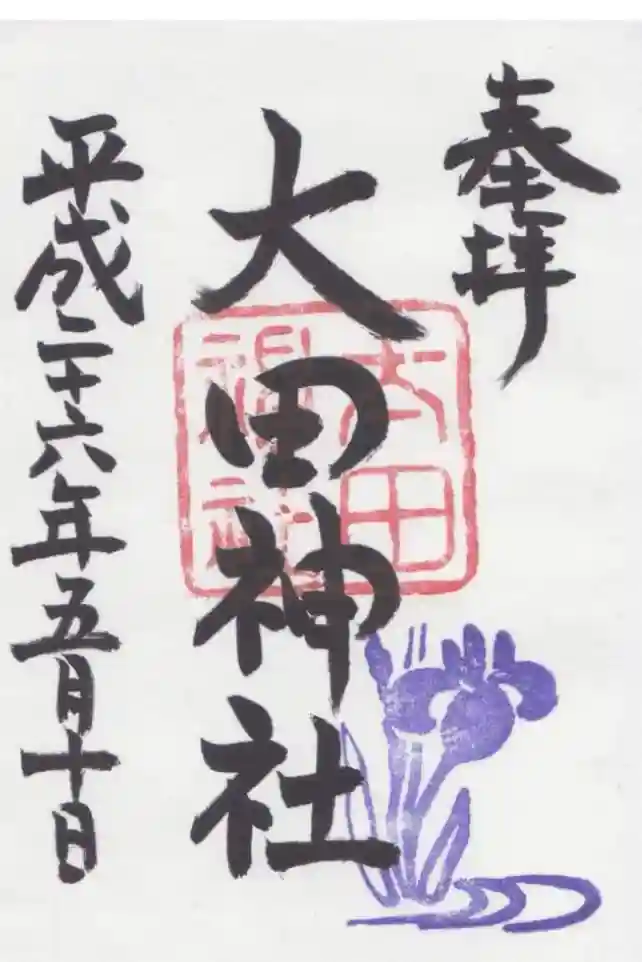 奉拝
大田神社
大田
神社
平成二十六年五月十日